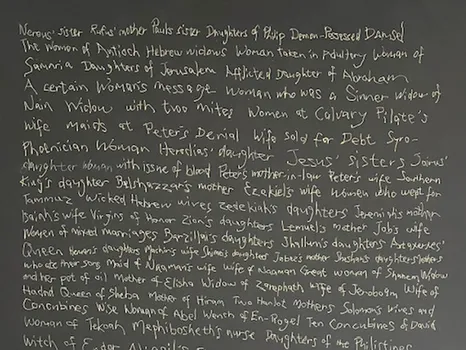 Nereus' sister Rufus' mother Pauls sister Daughters of Philip Demon-Possessed Damsel
The Women of Antioch Hebrew widows Woman taken in Adultery Woman of
Samaria Daughters of Jerusalem Afflicted Daughter of Abraham
A certain Woman's message Woman who was a Sinner Widow of
Nain Widow with two mites Women at Calvary Pilate's
wife Maids at Peter's Denial Wife sold for Debt Syro-
Phoenician Woman Herodias' daughter Jesus' Sisters Jairus'
daughter Woman with issue of blood Peter's mother-in-law Peter's wife Southern
King's daughter Belshazzar's mother Ezekiel's wife Women who wept for
Tammuz Wicked Hebrew wives Zedekiah's daughters Jeremiahs mother
Isaiah's wife Virgins of Honor Zion's daughters Lemuel's mother Job's wife
Women of mixed marriages Barzillai's daughters Shallum's daughters Artaxerxes'
Queen Heman's daughters Machir's wife Sheshan's daughters Mothers
who ate their sons Maid of Naaman's wife Wife of Naaman Great woman of Shunem Widow
and her pot of oil Mother of Elisha Widow of Zarephath wife of Jeroboam Wife of
Hadad Queen of Sheba Mother of Hiram Two Harlot Mothers Solomon's wives and
Concubines Wise Woman of Abel Wench of En-Rogel Ten Concubines of David
Woman of Tekoah Mephibosheth's nurse Daughters of the Philistines
Witch of Endor